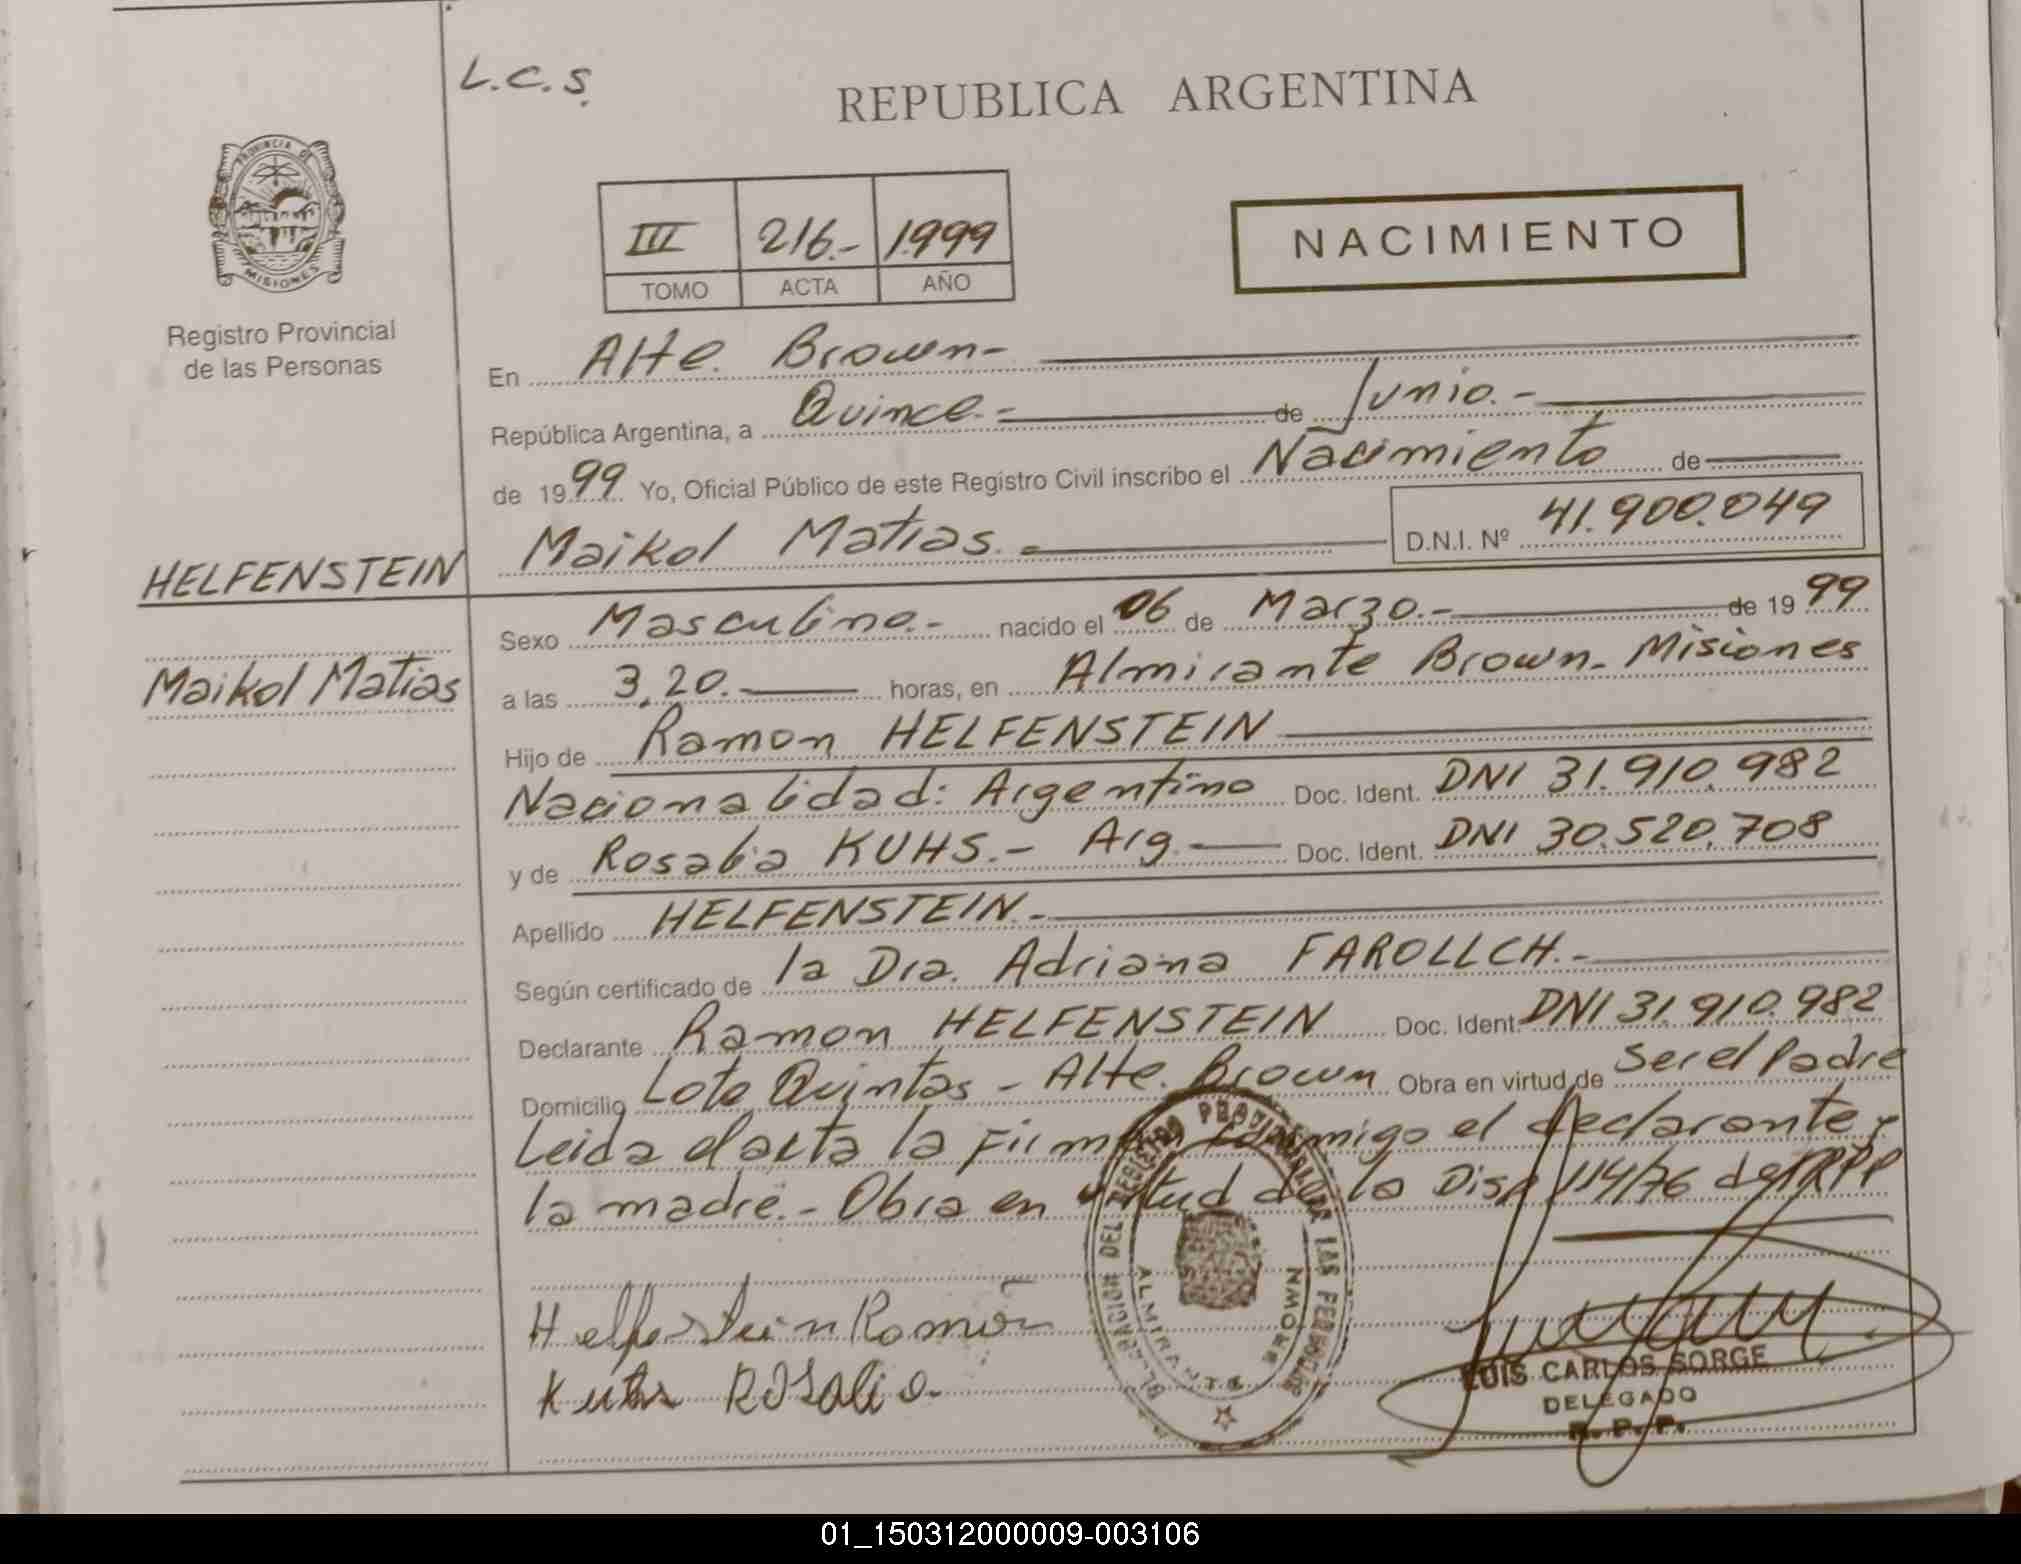 L.C.S.
REPUBLICA ARGENTINA
PROVINCIA DE
MISIONES
Registro Provincial
de las Personas
III 216.- 1999
TOMO ACTA AÑO
NACIMIENTO
En Alte. Brown-
República Argentina, a Quince.- de Junio.-
de 1999 Yo, Oficial Público de este Registro Civil inscribo el Nacimiento de
Maikol Matias.- D.N.I. Nº 41.900.049
HELFENSTEIN
Maikol Matias
Sexo Masculino.- nacido el 06 de Marzo.- de 1999
a las 3,20.- horas, en Almirante Brown- Misiones
Hijo de Ramon HELFENSTEIN
Nacionalidad: Argentino Doc. Ident. DNI 31.910.982
y de Rosalia KUHS.- Arg.- Doc. Ident. DNI 30.520.708
Apellido HELFENSTEIN.-
Según certificado de la Dra. Adriana FAROLLCH.-
Declarante Ramon HELFENSTEIN Doc. Ident. DNI 31.910.982
Domicilio Lote Quintas - Alte. Brown Obra en virtud de ser el Padre
Leida el acta la Firman conmigo el declarante y
la madre.- Obra en virtud de la Disp 114/76 del RPP
Helfenstein Ramon
Kuhs Rosalia
DELEGACION DEL REGISTRO PROVINCIAL DE LAS PERSONAS
ALMIRANTE BROWN
LUIS CARLOS SORGE
DELEGADO
R. P. P.
01_150312000009-003106